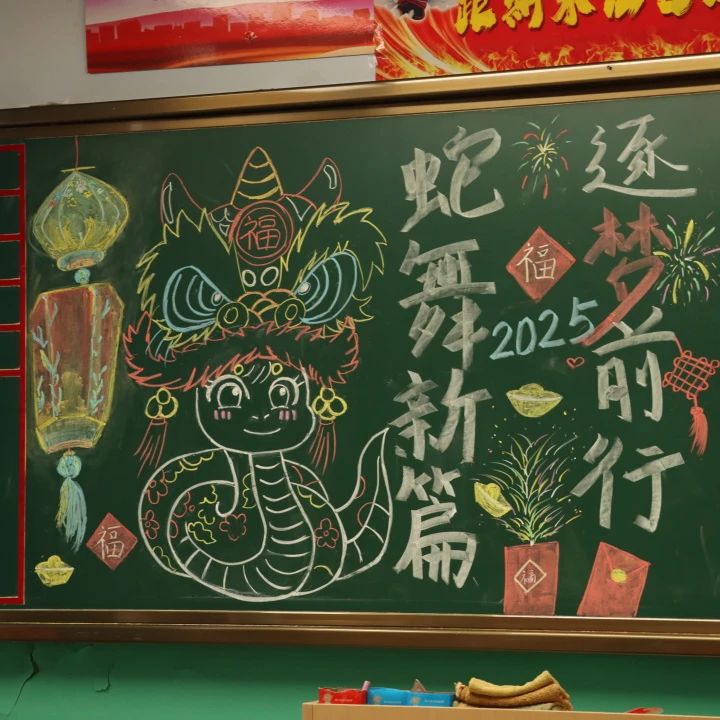 福
蛇舞新篇
福
2025
逐梦前行
福
福